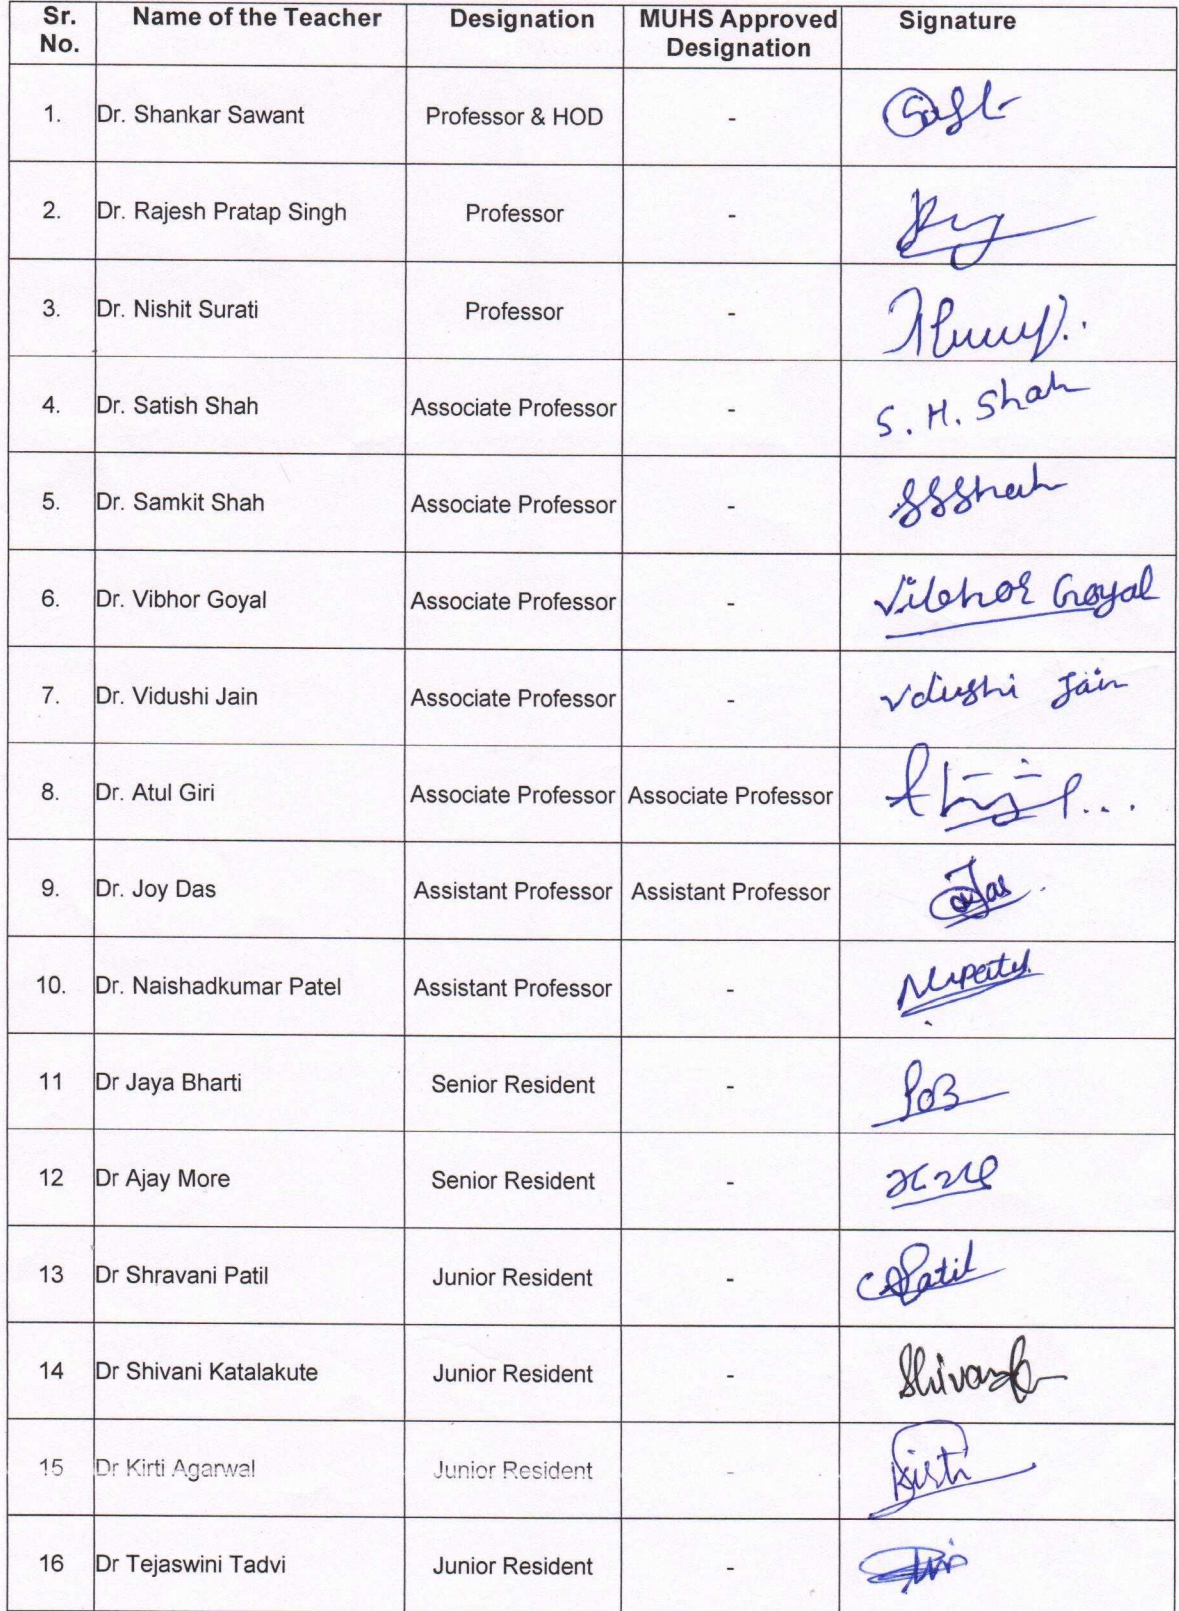 Sr. No. Name of the Teacher Designation MUHS Approved Designation Signature
1. Dr. Shankar Sawant Professor & HOD -
2. Dr. Rajesh Pratap Singh Professor -
3. Dr. Nishit Surati Professor -
4. Dr. Satish Shah Associate Professor - S. H. Shah
5. Dr. Samkit Shah Associate Professor - SSShah
6. Dr. Vibhor Goyal Associate Professor - Vibhor Goyal
7. Dr. Vidushi Jain Associate Professor - Vdushi Jain
8. Dr. Atul Giri Associate Professor Associate Professor
9. Dr. Joy Das Assistant Professor Assistant Professor
10. Dr. Naishadkumar Patel Assistant Professor -
11 Dr Jaya Bharti Senior Resident -
12 Dr Ajay More Senior Resident -
13 Dr Shravani Patil Junior Resident - Patil
14 Dr Shivani Katalakute Junior Resident -
15 Dr Kirti Agarwal Junior Resident - Kirti
16 Dr Tejaswini Tadvi Junior Resident -